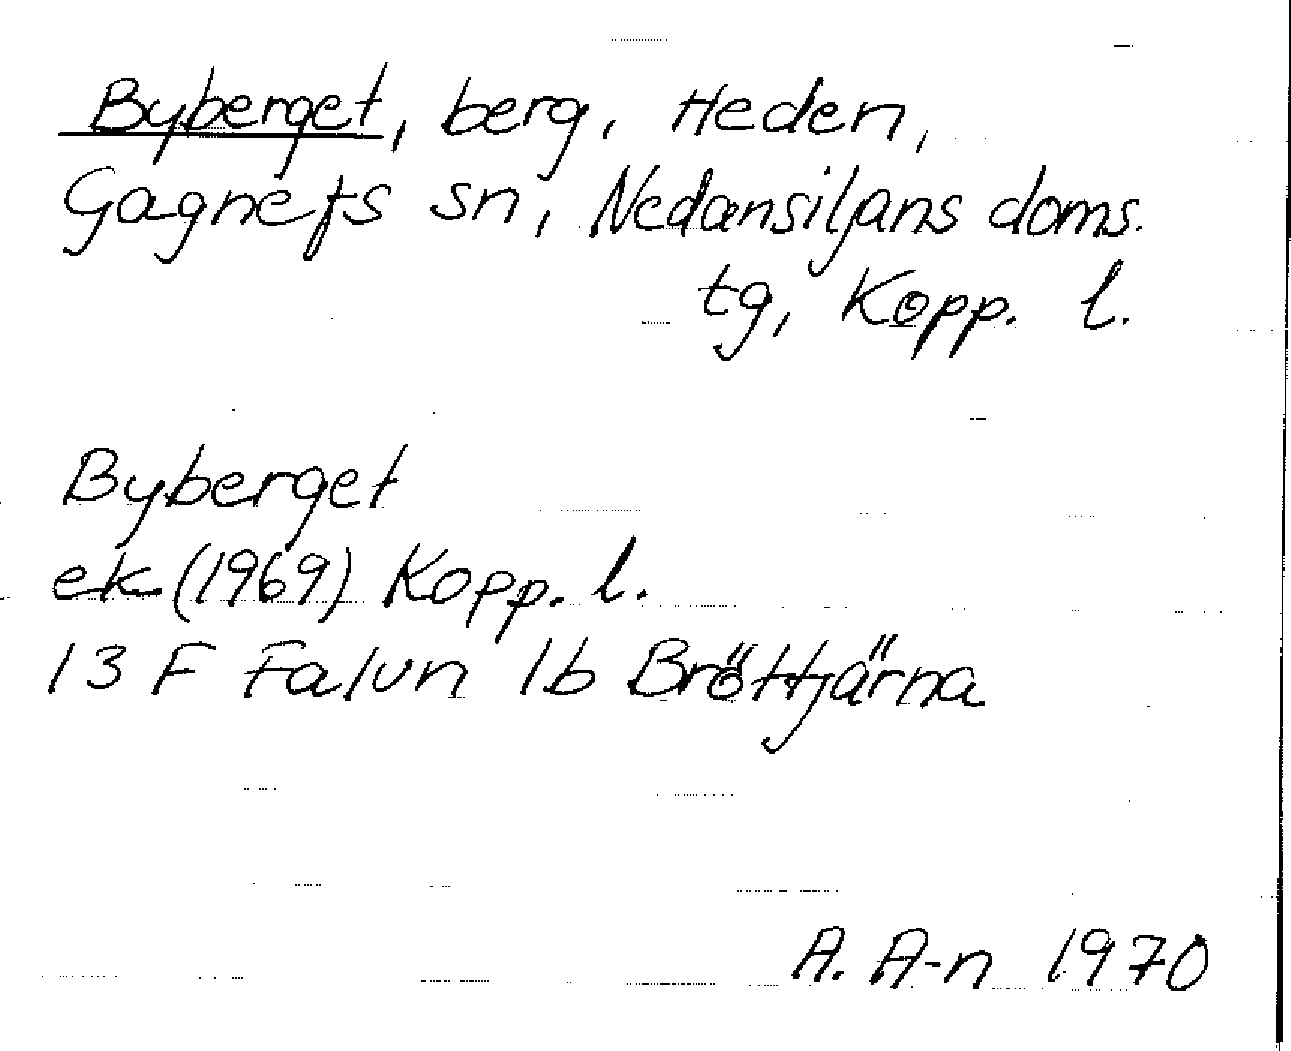 Byberget, berg, Heden,
Gagnefs sn, Nedansiljans doms.
tg, Kopp. l.
Byberget
ek (1969) Kopp. l.
13 F Falun 1b Bröttjärna
A. A-n 1970